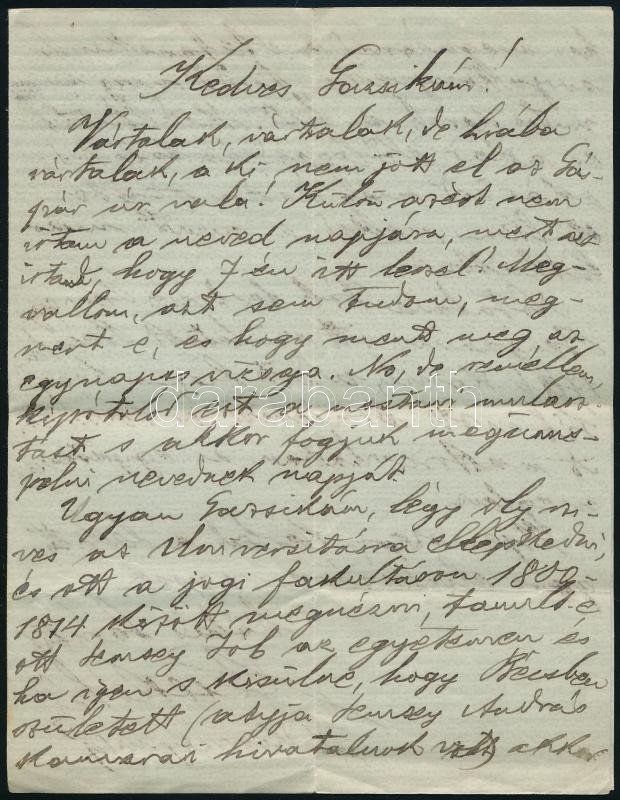 Kedves Gazsikám!
Vártalak, vártalak, de hiába
vártalak, a ki nem jött el az Gás-
pár úr vala! Külön azért nem
írtam a neved napjára, mert azt
írtad, hogy 7-én itt leszel. Meg-
vallom, azt sem tudom, meg-
ment e, és hogy ment meg, az
egynapos vizsga. No, de remélem,
kipótolod ezt a mostani mulasz-
tást s akkor fogjuk megünne-
pelni nevednek napját.
Ugyan Gazsikám, légy oly szí-
ves az Universitásra ellépkedni,
és ott a jogi fakultáson 1809-
1814 között megnézni, tanult-e
ott Semsey Jób az egyetemen és
ha igen s kisülne, hogy Bécsben
született (atyja Semsey András
kamarai hivatalnok volt) akkor
darabanth